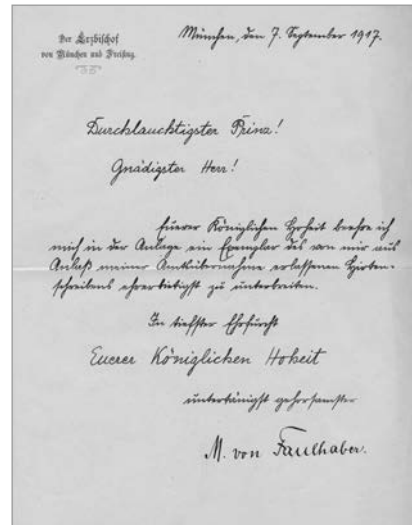 Der Erzbischof
von München und Freising.
München, den 7. September 1917.
Durchlauchtigster Prinz!
Gnädigster Herr!
Euerer Königlichen Hoheit beehre ich
mich in der Anlage ein Exemplar des von mir aus
Anlaß meiner Amtsübernahme erlassenen Hirten-
schreibens ehrerbietigst zu unterbreiten.
In tiefster Ehrfurcht
Euerer Königlichen Hoheit
unterthänigst gehorsamster
M. von Faulhaber.